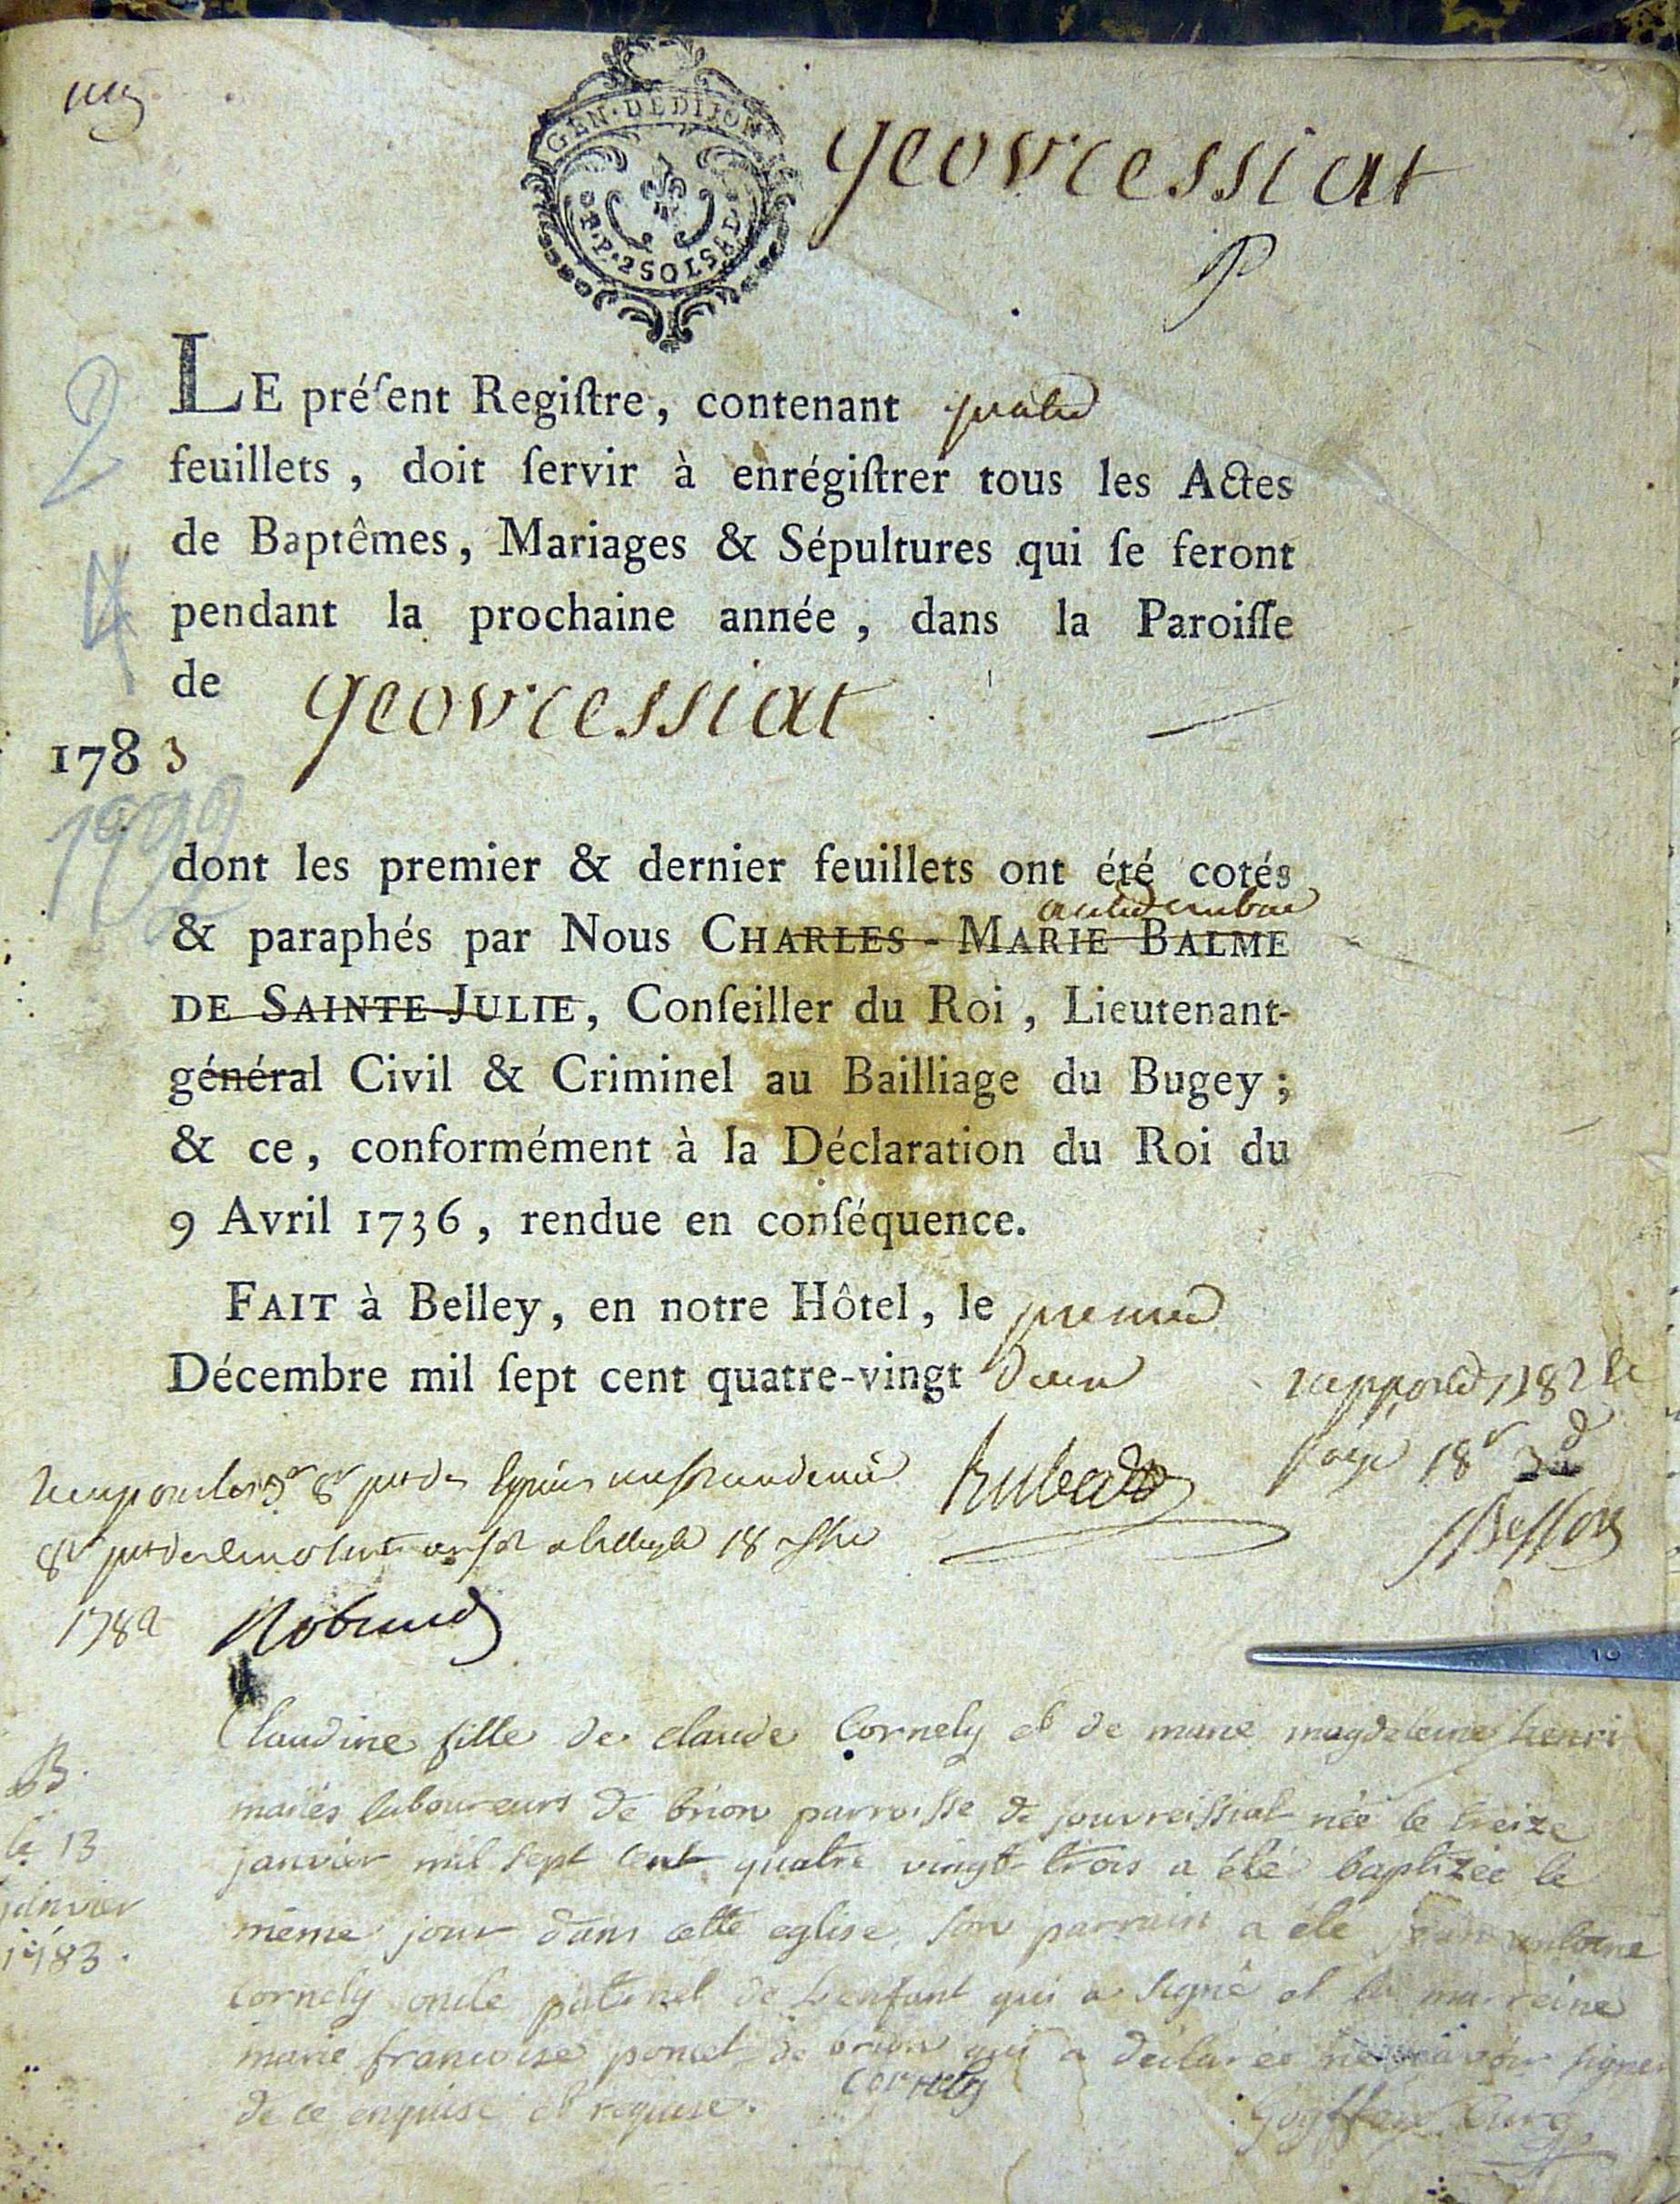 GEN·DE DIJON
geovressiat
P·P·2 SOLS 8 D
LE préſent Regiſtre, contenant quatre
feuillets, doit ſervir à enrégiſtrer tous les Actes
de Baptêmes, Mariages & Sépultures qui ſe feront
pendant la prochaine année, dans la Paroiſſe
de geovressiat
1783
dont les premier & dernier feuillets ont été cotés
& paraphés par Nous CHARLES-MARIE BALME
DE SAINTE JULIE, Conſeiller du Roi, Lieutenant-
général Civil & Criminel au Bailliage du Bugey;
& ce, conformément à la Déclaration du Roi du
9 Avril 1736, rendue en conſéquence.
FAIT à Belley, en notre Hôtel, le premier
Décembre mil ſept cent quatre-vingt deux
18
1782
2
4
1792
B.
le 13
janvier
1783.
Claudine fille de claude Cornely et de marie magdeleine henri
mariés laboureurs de brion parroisse de jouvreissiat née le treize
janvier mil sept cent quatre vingt trois a été baptizée le
même jour dans cette eglise, son parrain a été jean antoine
cornely oncle paternel de l'enfant qui a signé et la marreine
marie francoise poncet de brion qui a déclarée ne savoir signer
de ce enquise et requise. cornely